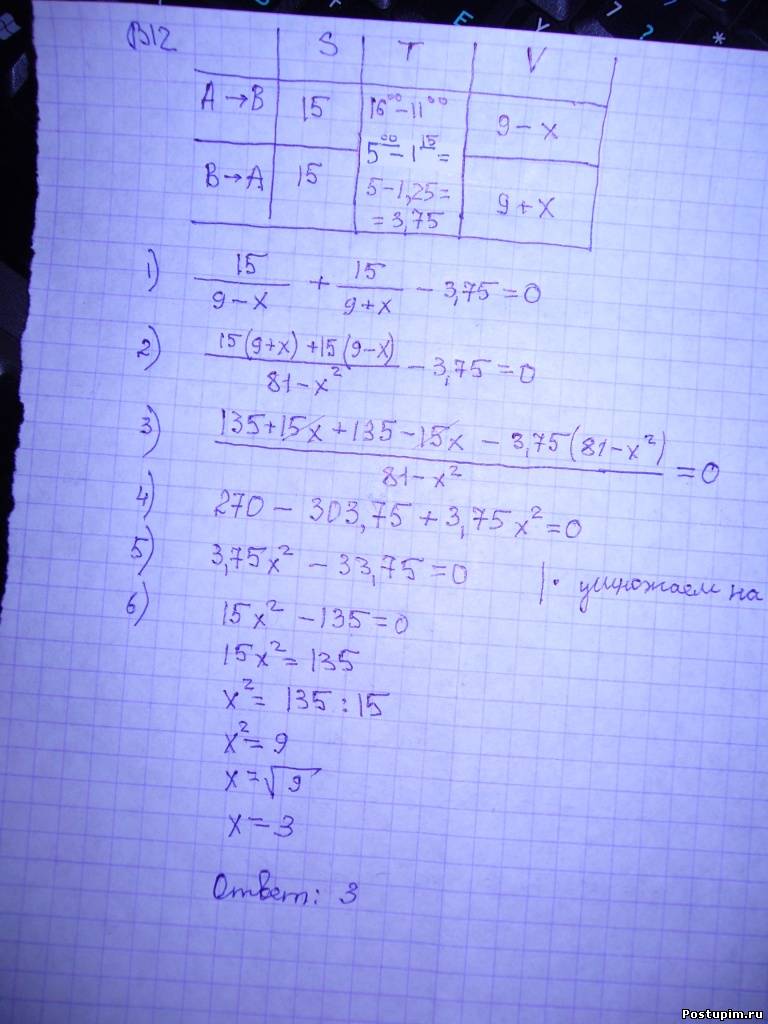 В12
S T V
A → B 15 16⁰⁰ – 11⁰⁰ 9 – x
5⁰⁰ – 1¹⁵ =
B → A 15 5 – 1,25 = 9 + x
= 3,75
1) 15/(9 – x) + 15/(9 + x) – 3,75 = 0
2) (15(9+x) + 15(9–x))/(81 – x²) – 3,75 = 0
3) (135 + 15x + 135 – 15x – 3,75(81 – x²))/(81 – x²) = 0
4) 270 – 303,75 + 3,75x² = 0
5) 3,75x² – 33,75 = 0 | · умножаем на
6) 15x² – 135 = 0
15x² = 135
x² = 135 : 15
x² = 9
x = √9
x = 3
Ответ: 3
Postupim.ru